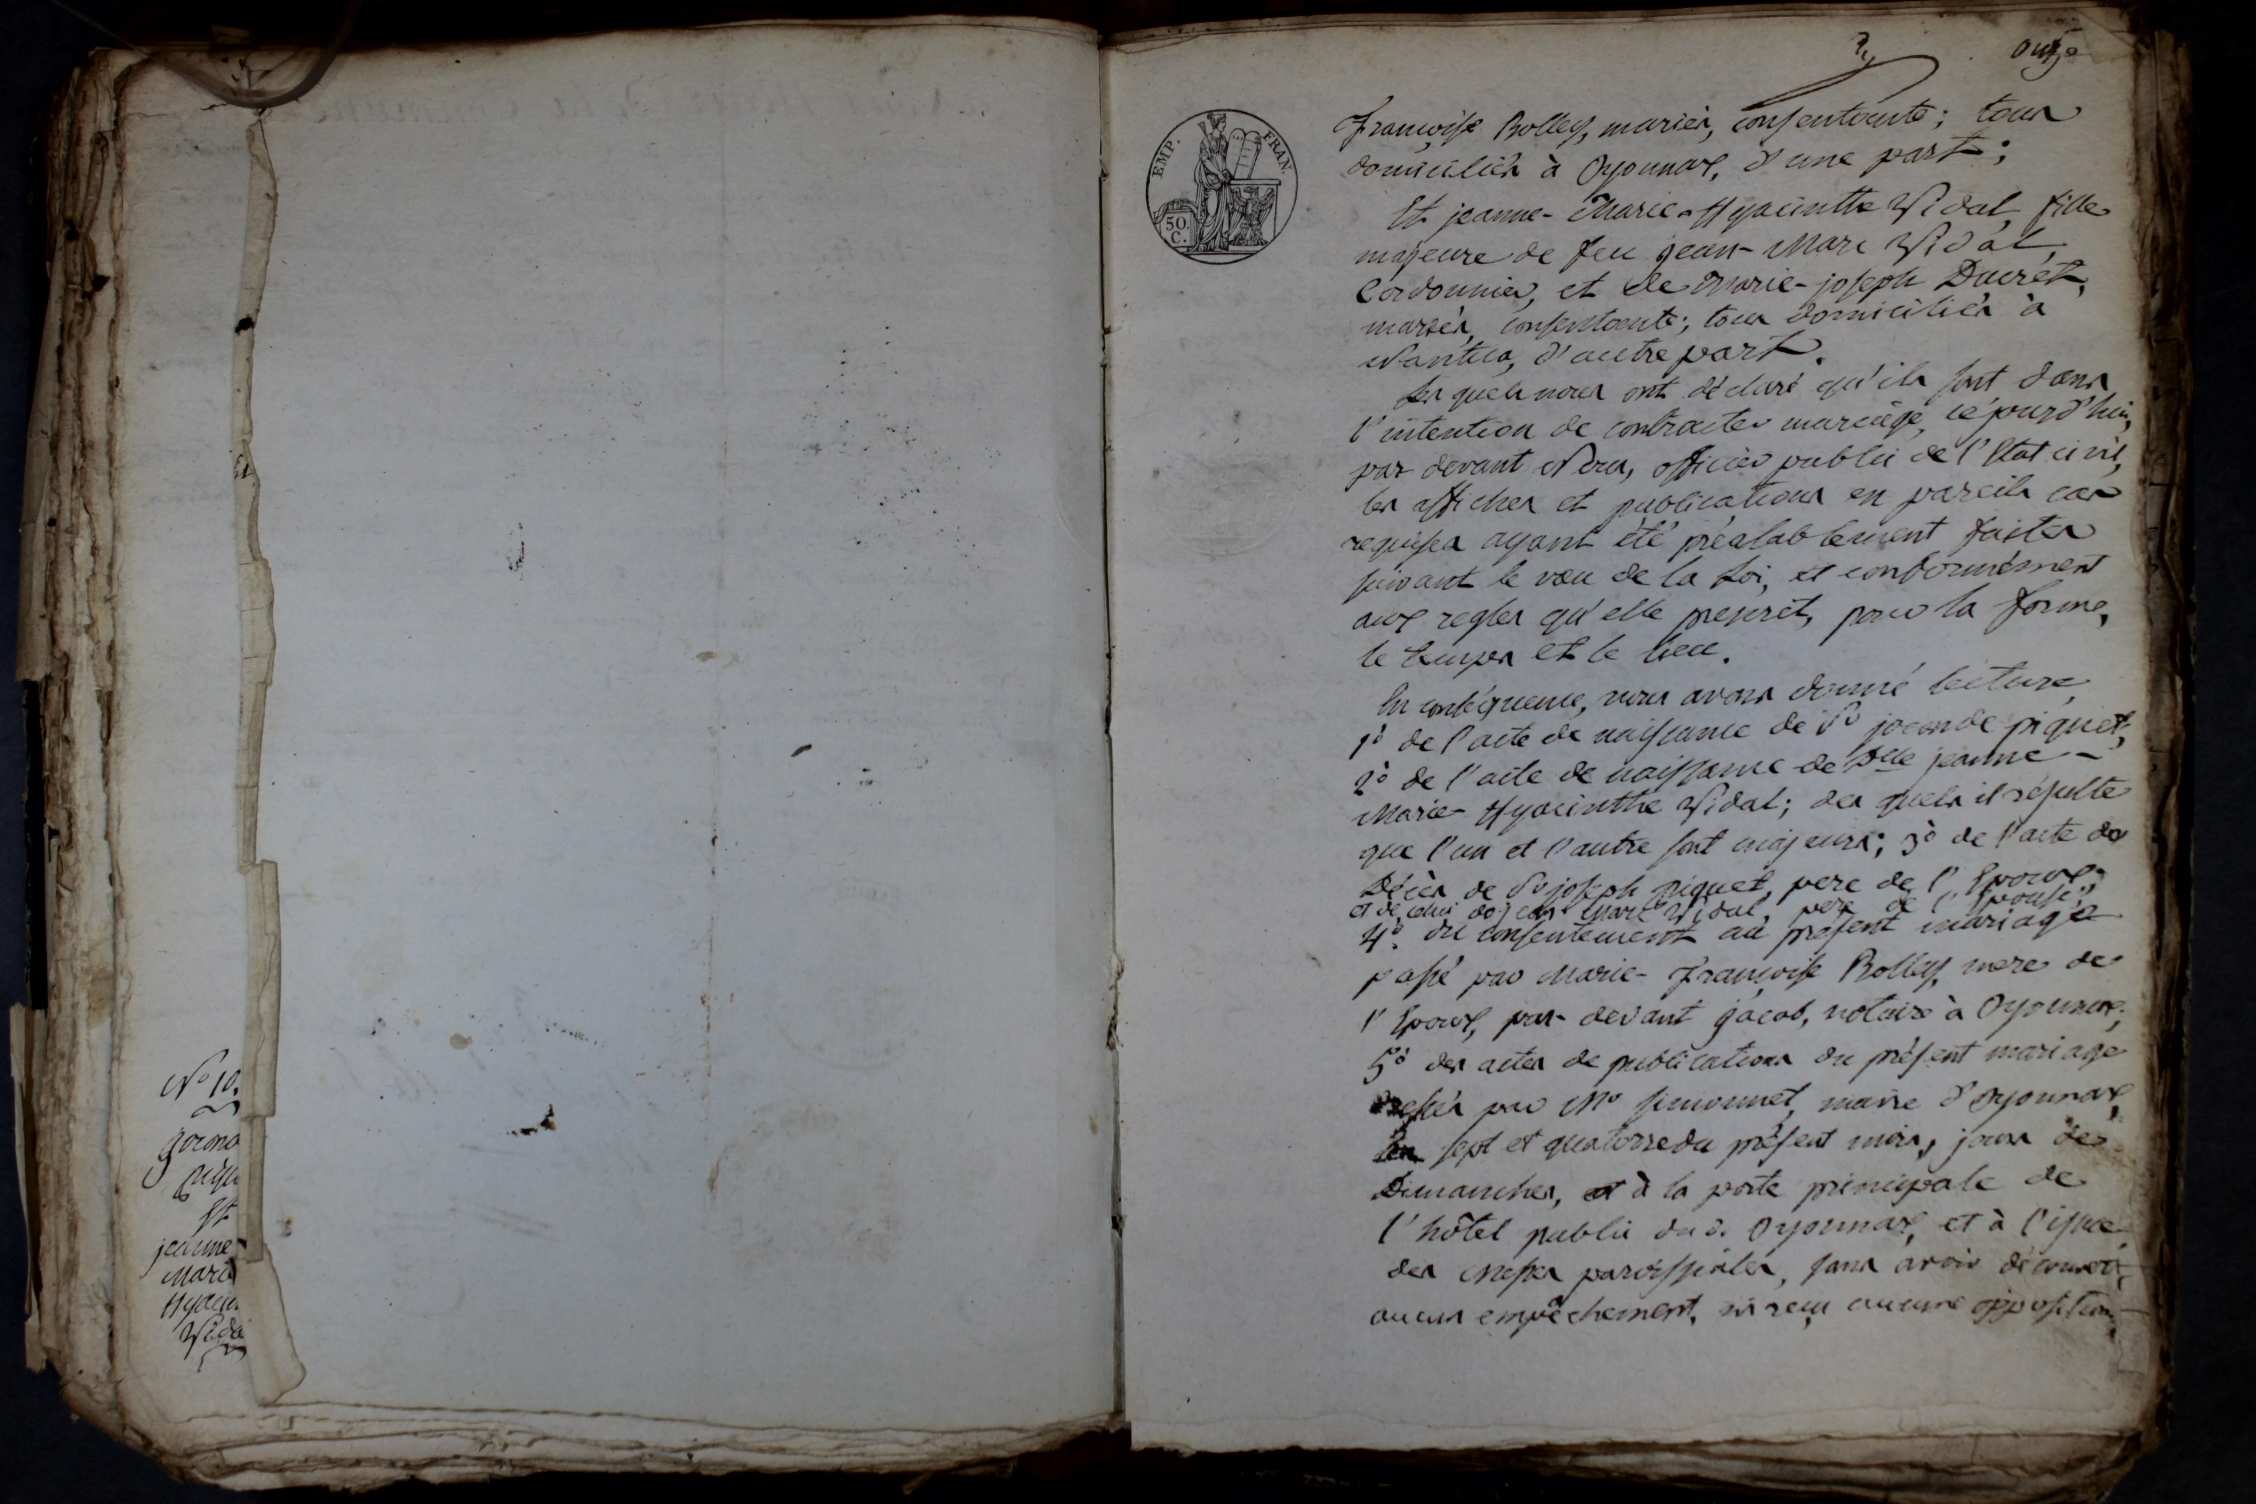 onze
EMP. FRAN.
50.
C.
françoise Bolley, mariés, consentante; tous
domiciliés à Oyonnax, d'une part;
Et jeanne-Marie-Hyacinthe Vidal, fille
majeure de feu jean-Marc Vidal,
Cordonnier, et de Marie-joseph Ducrét,
mariés, consentante; tous domiciliés à
Nantua, d'autre part.
Lesquels nous ont déclaré qu'ils sont dans
l'intention de contracter mariage, cejourd'hui,
par devant Nous, officier public de l'Etat civil,
les affiches et publications en pareils cas
requises ayant été préalablement faites
suivant le vœu de la Loi, et conformément
aux regles qu'elle prescrit, pour la forme,
le temps et le lieu.
En conséquence, nous avons donné lecture
1º de l'acte de naissance de Sr joconde piquet;
2º de l'acte de naissance de Dlle jeanne-
Marie-Hyacinthe Vidal; desquels il résulte
que l'un et l'autre sont majeurs; 3º de l'acte de
Décès de Sr joseph piquet, pere de l'Epoux,
et de celui de jean Marc Vidal, pere de l'Epouse;
4º. du consentement au présent mariage
passé par Marie-françoise Bolley, mere de
l'Epoux, par-devant jacob, notaire à Oyonnax;
5º des actes de publications du présent mariage
dressés par Mr simonnet, maire d'Oyonnax,
les sept et quatorze du présent mois, jours de
Dimanches, à la porte principale de
l'hôtel public dud. Oyonnax, et à l'issue
des Messes paroissiales, sans avoir découvert
aucun empêchement, ni reçu aucune opposition,
Nº 10.
jocond
piqu
Et
jeanne
Marie
Hyacin
Vida